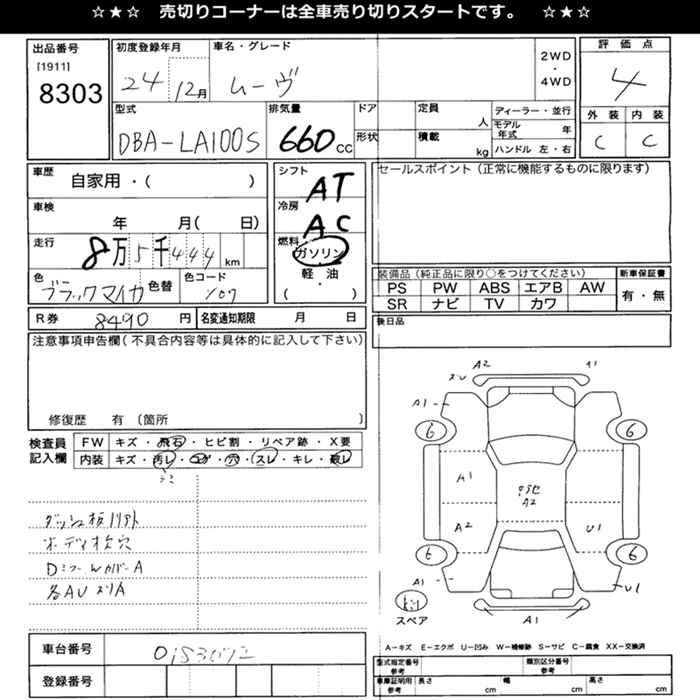 ☆★☆ 売切りコーナーは全車売り切りスタートです。 ☆★☆
出品番号
[1911]
8303
初度登録年月
24 12月
車名・グレード
ムーヴ
2WD
・
4WD
評価点
4
外装 内装
C C
型式
DBA-LA100S
排気量
660 CC
ドア
形状
定員
人
積載
kg
ディーラー・並行
モデル年式 年
ハンドル 左・右
車歴
自家用・( )
車検
年 月( 日)
走行
8万5千444 km
色
ブラックマイカ
色替
色コード
シフト
AT
冷房
AC
燃料
ガソリン
・
軽・油
( )
セールスポイント(正常に機能するものに限ります)
装備品(純正品に限り○をつけてください)
PS PW ABS エアB AW
SR ナビ TV カワ
新車保証書
有・無
R券 8490 円
名変通知期限 月 日
後日品
注意事項申告欄(不具合内容等は具体的に記入して下さい)
修復歴 有(箇所 )
検査員
記入欄
FW キズ・飛石・ヒビ割・リペア跡・X要
内装 キズ・汚レ・コゲ・穴・スレ・キレ・破レ
ダッシュ板
ボディ
車台番号
登録番号
A2
A1
A1
6 6
A1
A2
A2
U1
6 6
A1
U1
スペア
A1
A-キズ E-エクボ U-凹み W-補修跡 S-サビ C-腐食 XX-交換済
型式指定番号
参考
類別区分番号
参考
車庫証明用
参考
長さ cm
幅 cm
高さ cm